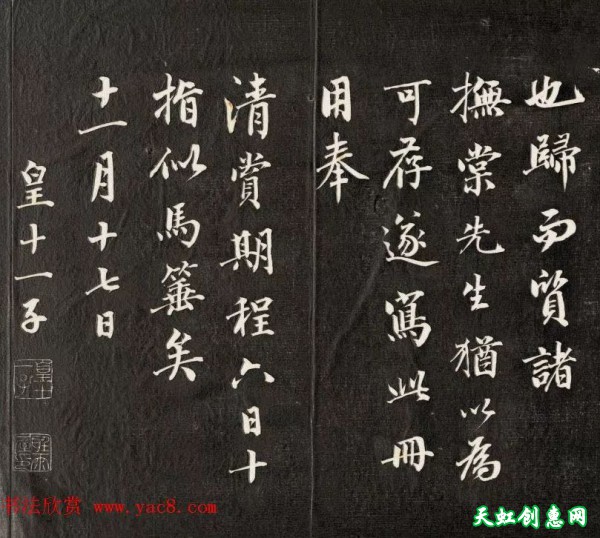 也歸而質諸
撫棠先生猶以為
可存遂寫此冊
用奉
清賞期程六日十
指似馬箠矣
十一月十七日
皇十一子
书法欣赏 www.yac8.com
天虹创惠网